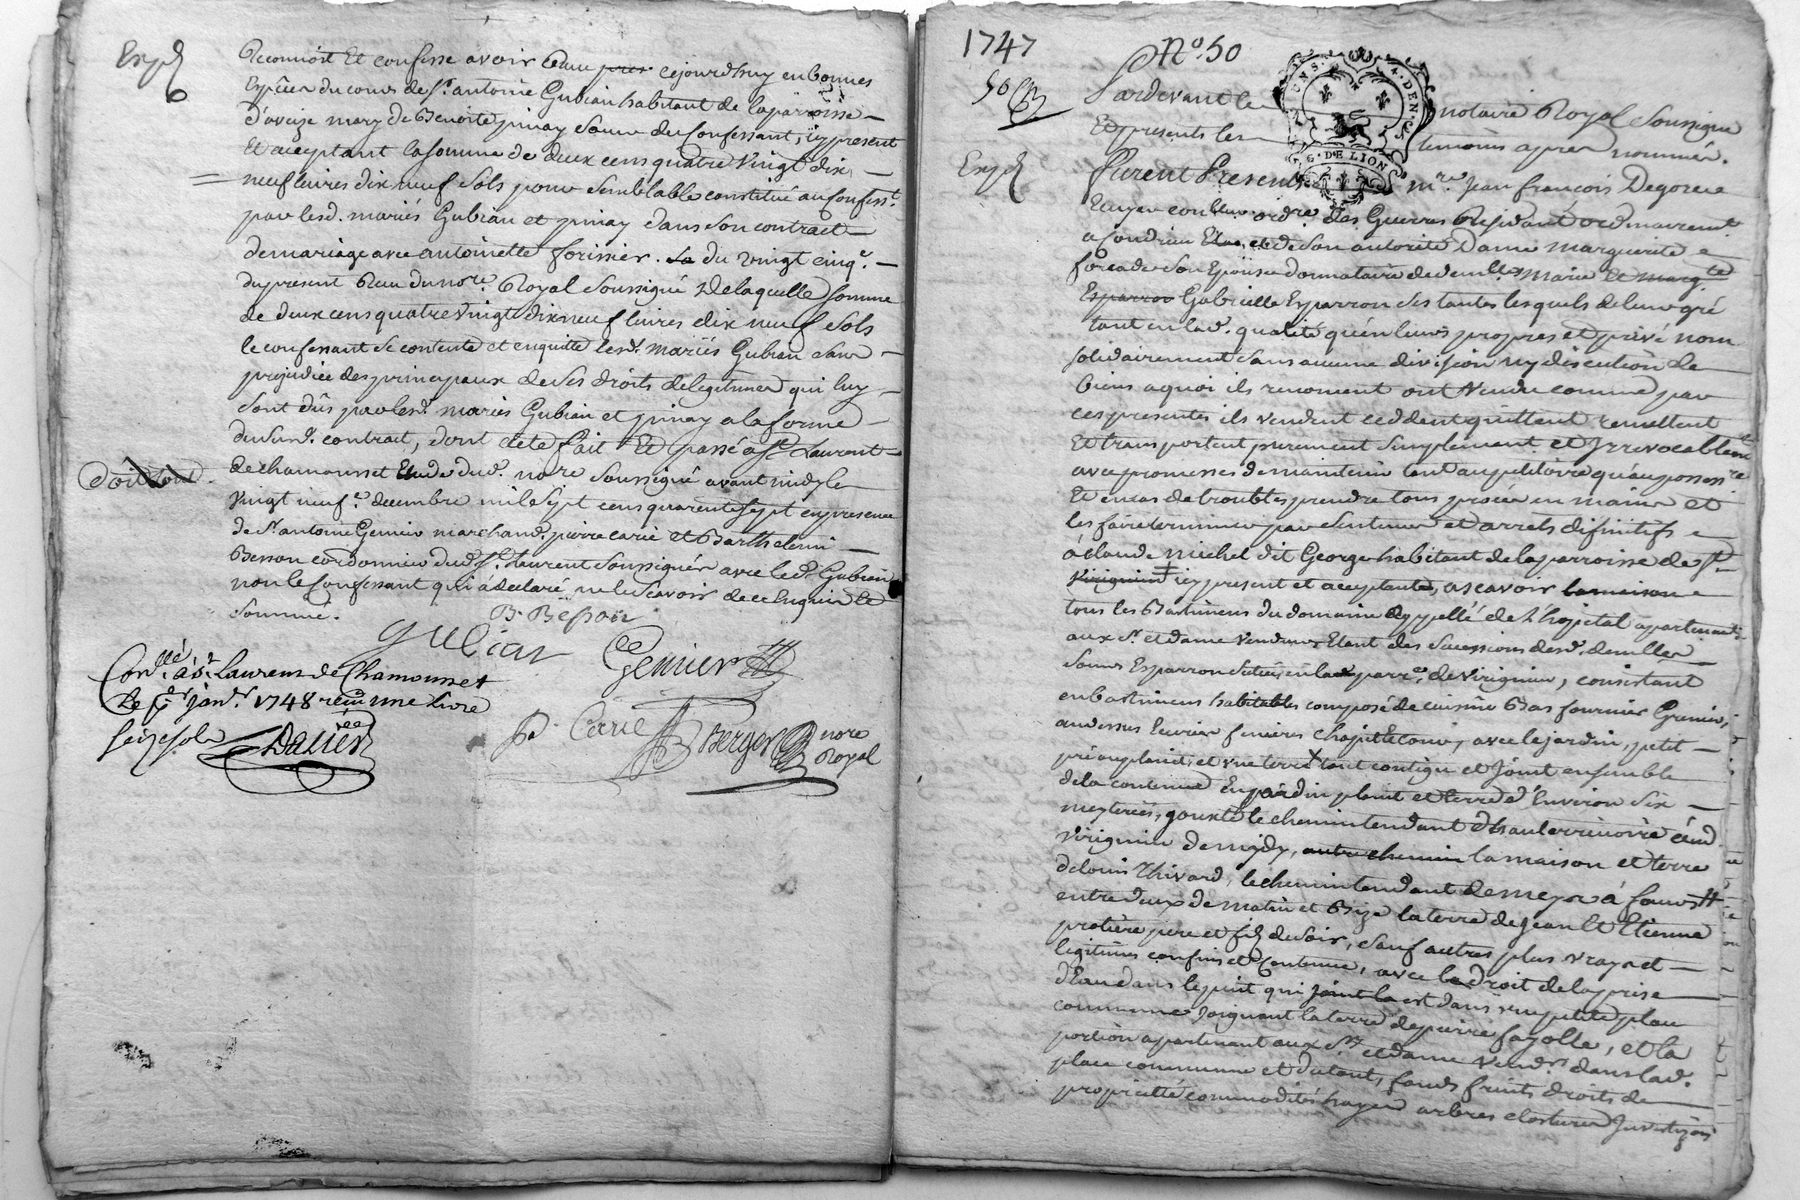 Expd
Reconnoit Et confesse avoir Reau pres cejourdhuy en bonnes
Espèces du cours de Sr. antoine Gubian habitant de la parroisse
d'aveize mary de Benoite pinay Sœur du Confessant, icy present
Et aceptant la somme de deux cens quatre vingt dix
neuf livres dix neuf Sols pour Semblable constitué au Confesst.
par lesd. mariés Gubian et pinay dans Son contract
de mariage avec antoinette forissier. Le du vingt cinqe.
du present Reau du nore. Royal Soussigné De laquelle Somme
de deux cens quatre vingt dix neuf livres dix neuf Sols
le confessant Se contente et en quitte lesd. mariés Gubian Sans
prejudice des principaux de Ses droits de legitimes qui luy
Sont dûs par lesd. mariés Gubian et pinay a la forme
du Susd. contract, dont acte fait Et passé a St. Laurent
de chamousset Etude dud. nore Soussigné avant midy le
vingt neufe. decembre mil Sept cens quarente Sept en presence
de Sr. antoine Genier marchand, pierre carie et Barthelemi
Besson cordonnier dud. St. Laurent Soussignés avec led. Gubian
non le Confessant qui a declaré ne le Scavoir de ce Enquis Et
Sommé.
B. Besson
Gubian Genier
Conllé. à St. Laurens de Chamousset
Le pr. janr. 1748 reçu une livre
seize sols Dalier
P. Carie Berger nore
Royal
1747
No. 50
50
Pardevant le notaire Royal Soussigné
Et presents les temoins apres nommés.
Expd
Furent Presents mre. Jean françois Degorce
Ecuyer conllier ordre. des Guerres Residant ordinairement
a Condrieu Et de Son autorité Dame marguerite
forcade Son Epouse donnataire de demlles marie Et margte.
Esparron Gabrielle Esparron Ses tantes lesquels de leur gré
tant en lad. qualité qu'en leurs propres et privé nom
Solidairement Sans aucune division ny discution de
biens a quoi ils renoncent ont Vendu comme par
ces presentes ils vendent ceddent quittent remettent
Et transportent purement Simplement et Irrevocablement
avec promesses de maintenir tant au petitoire qu'au possessre.
Et en cas de troubles prendre tous procès en mains et
les faire terminer par Sentences et arrets difinitifs
à claude michel dit George habitant de la parroisse de St.
Virignieu icy present et aceptant, ascavoir la maison
tous les Bastimens du domaine appellé de L'hopital apartenant
aux Sr. et dame vendeurs Etant des Successions desd. demlles
Sœurs Esparron Situés en lad. parre. de Virignieu, consistant
en bastimens habitables composé de cuisine Bas fournier Grenier,
au dessus Ecurier fenieres Chapitte cour, avec le jardin, petit
pré au plainit, et une terre tout contigu et Joint ensemble
de la contenue En jardin plainit et terre d'Environ Six
meyterées, jouxte le chemin tendant d'hauterivoire aud.
Virignieu de midy, autre chemin la maison et terre
de louis Thivard, le chemin tendant de meys à fours
entre deux de matin et Bize la terre de Jean Et Etienne
protière pere et fils de Soir, Sauf autres plus vrays et
legitimes confins et Contenue, avec le droit de la prise
d'Eau dans le puit qui joint la est dans une petite place
commune Joignant la terre de pierre fayolle, et la
portion apartenant aux Sr. et dame vendrs. dans lad.
place commune et du tout, fonds fruits droits de
proprietté commodités hayes arbres clostures Investizons